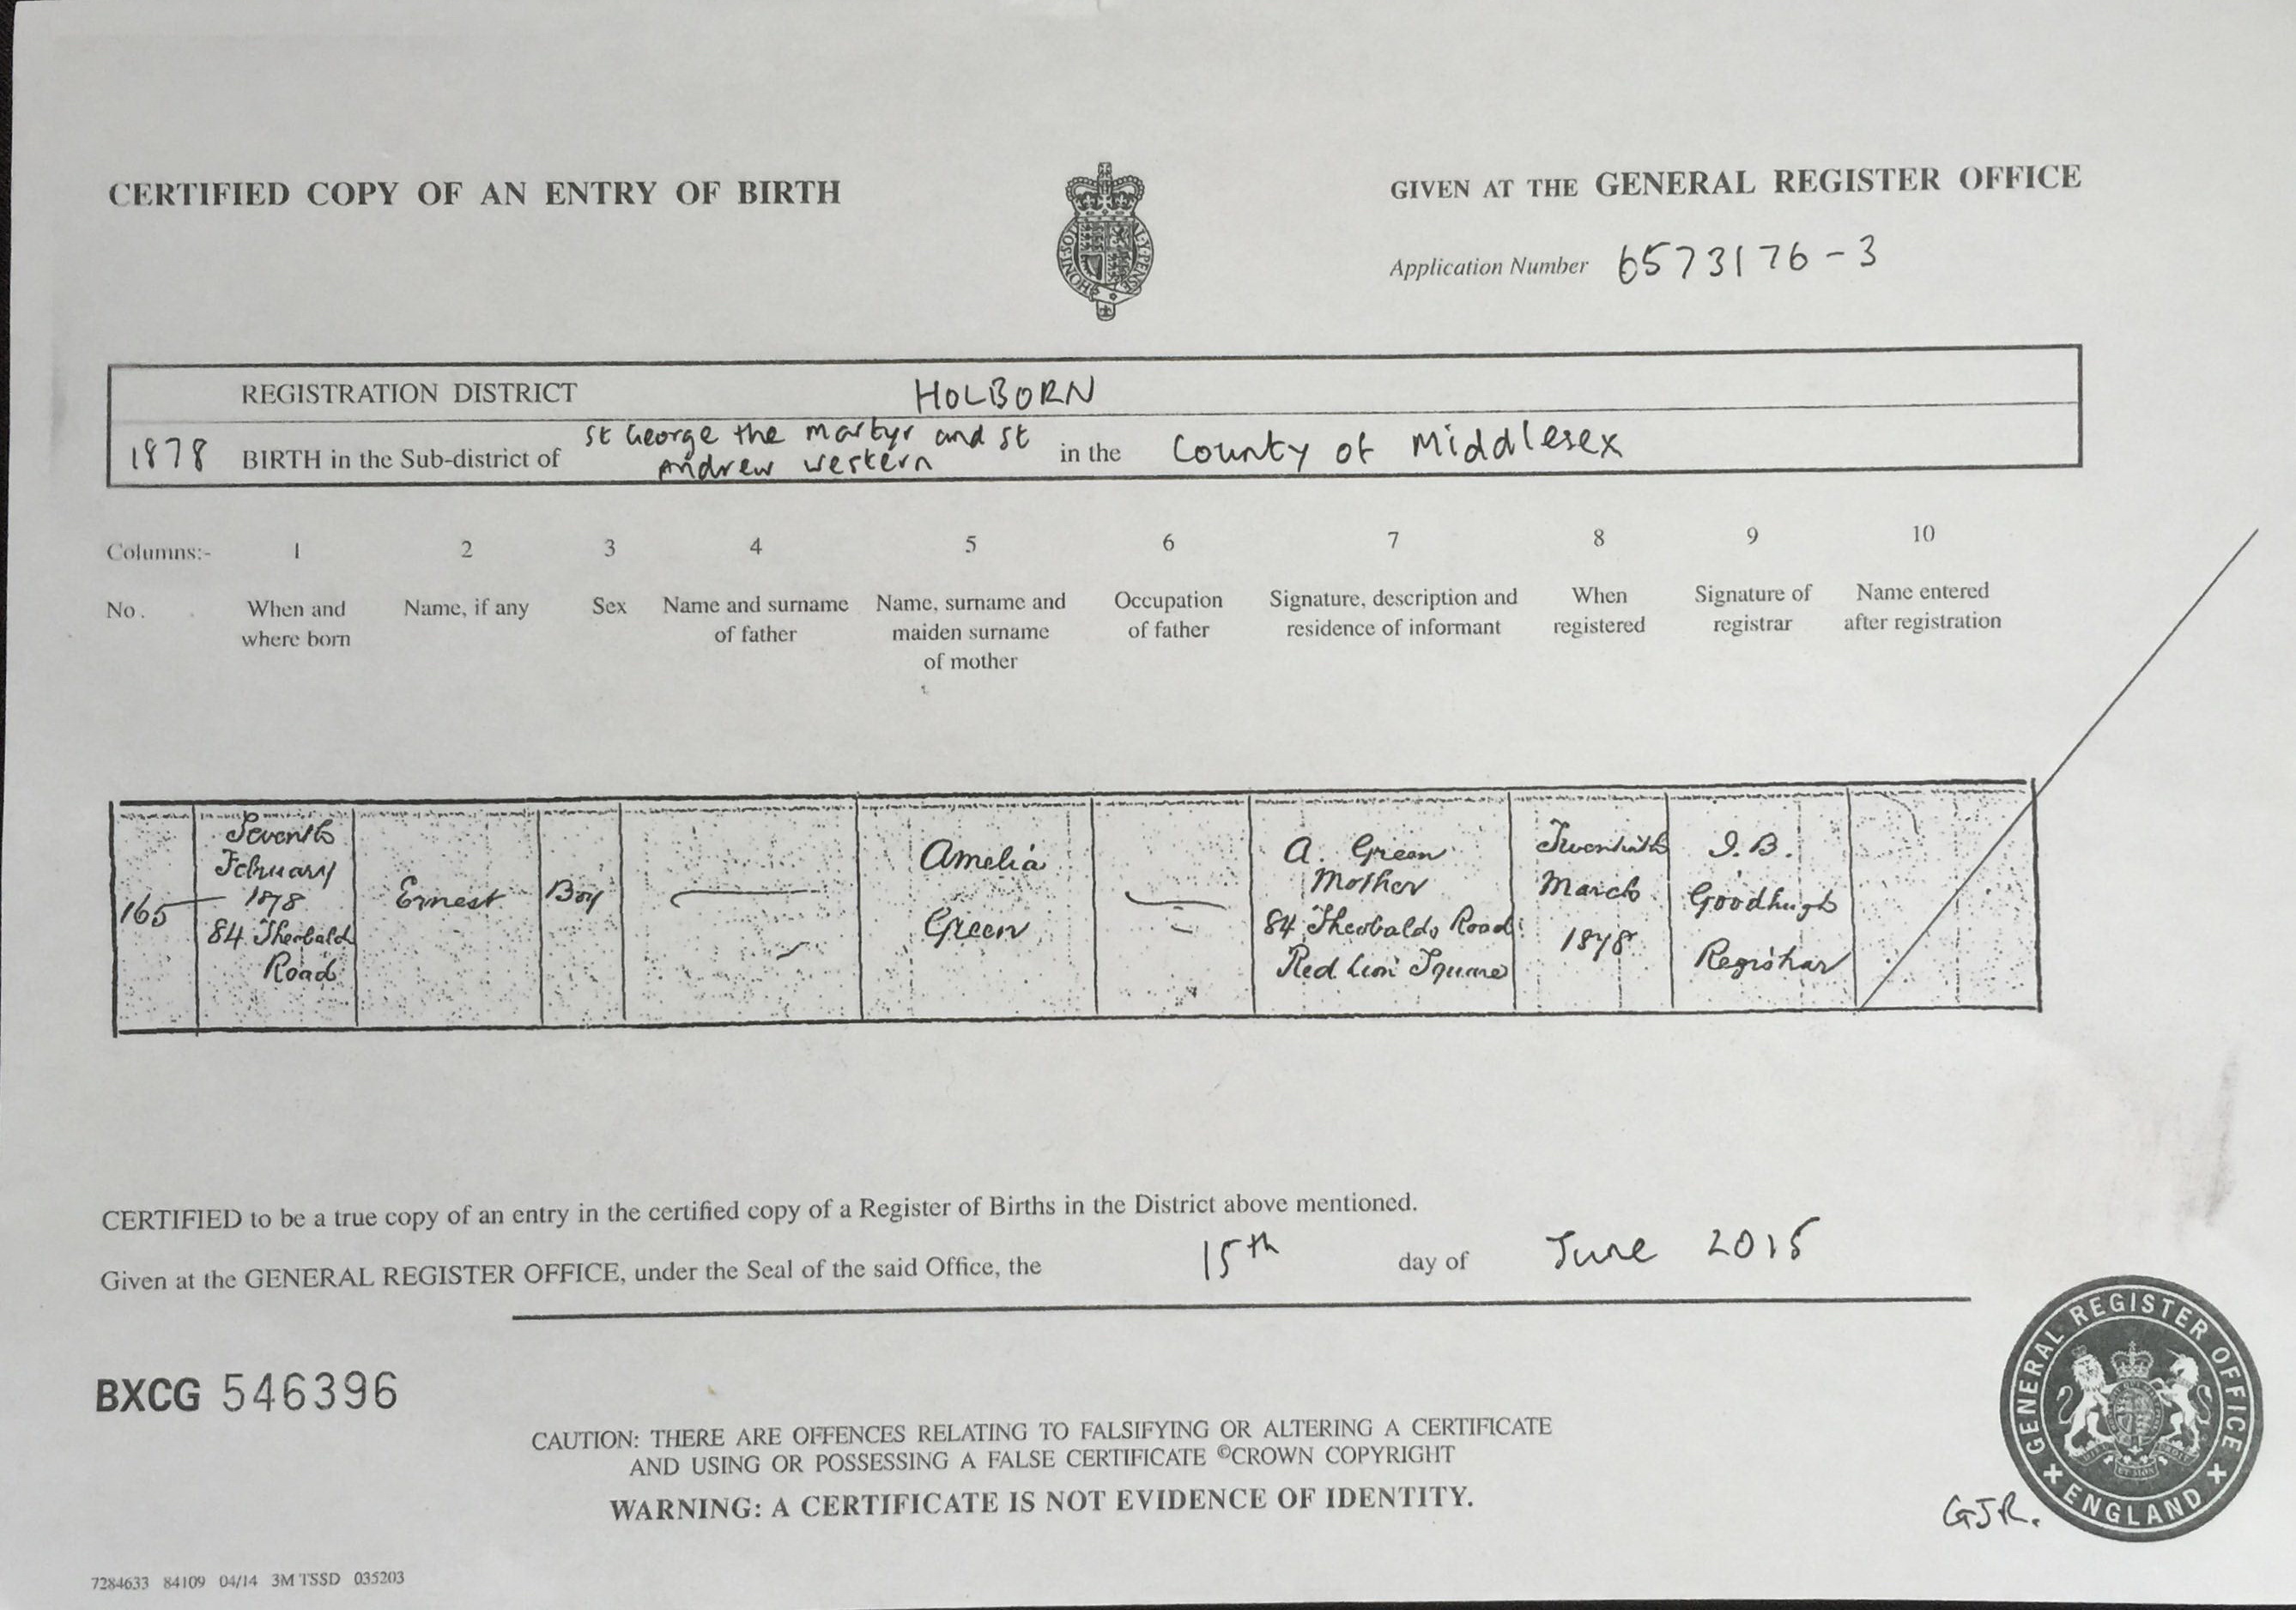 CERTIFIED COPY OF AN ENTRY OF BIRTH
GIVEN AT THE GENERAL REGISTER OFFICE
Application Number 6573176-3
REGISTRATION DISTRICT HOLBORN
1878 BIRTH in the Sub-district of St George the Martyr and St Andrew Western in the County of Middlesex
Columns:- 1 2 3 4 5 6 7 8 9 10
No. When and where born
Name, if any
Sex
Name and surname of father
Name, surname and maiden surname of mother
Occupation of father
Signature, description and residence of informant
When registered
Signature of registrar
Name entered after registration
165
Seventh
February
1878
84 Theobalds
Road
Ernest
Boy
Amelia
Green
A. Green
Mother
84 Theobalds Road
Red Lion Square
Twentieth
March
1878
J. B.
Goodhugh
Registrar
CERTIFIED to be a true copy of an entry in the certified copy of a Register of Births in the District above mentioned.
Given at the GENERAL REGISTER OFFICE, under the Seal of the said Office, the 15th day of June 2015
BXCG 546396
CAUTION: THERE ARE OFFENCES RELATING TO FALSIFYING OR ALTERING A CERTIFICATE
AND USING OR POSSESSING A FALSE CERTIFICATE ©CROWN COPYRIGHT
WARNING: A CERTIFICATE IS NOT EVIDENCE OF IDENTITY.
GENERAL REGISTER OFFICE
ENGLAND
GJR.
7284633 84109 04/14 3M TSSD 035203